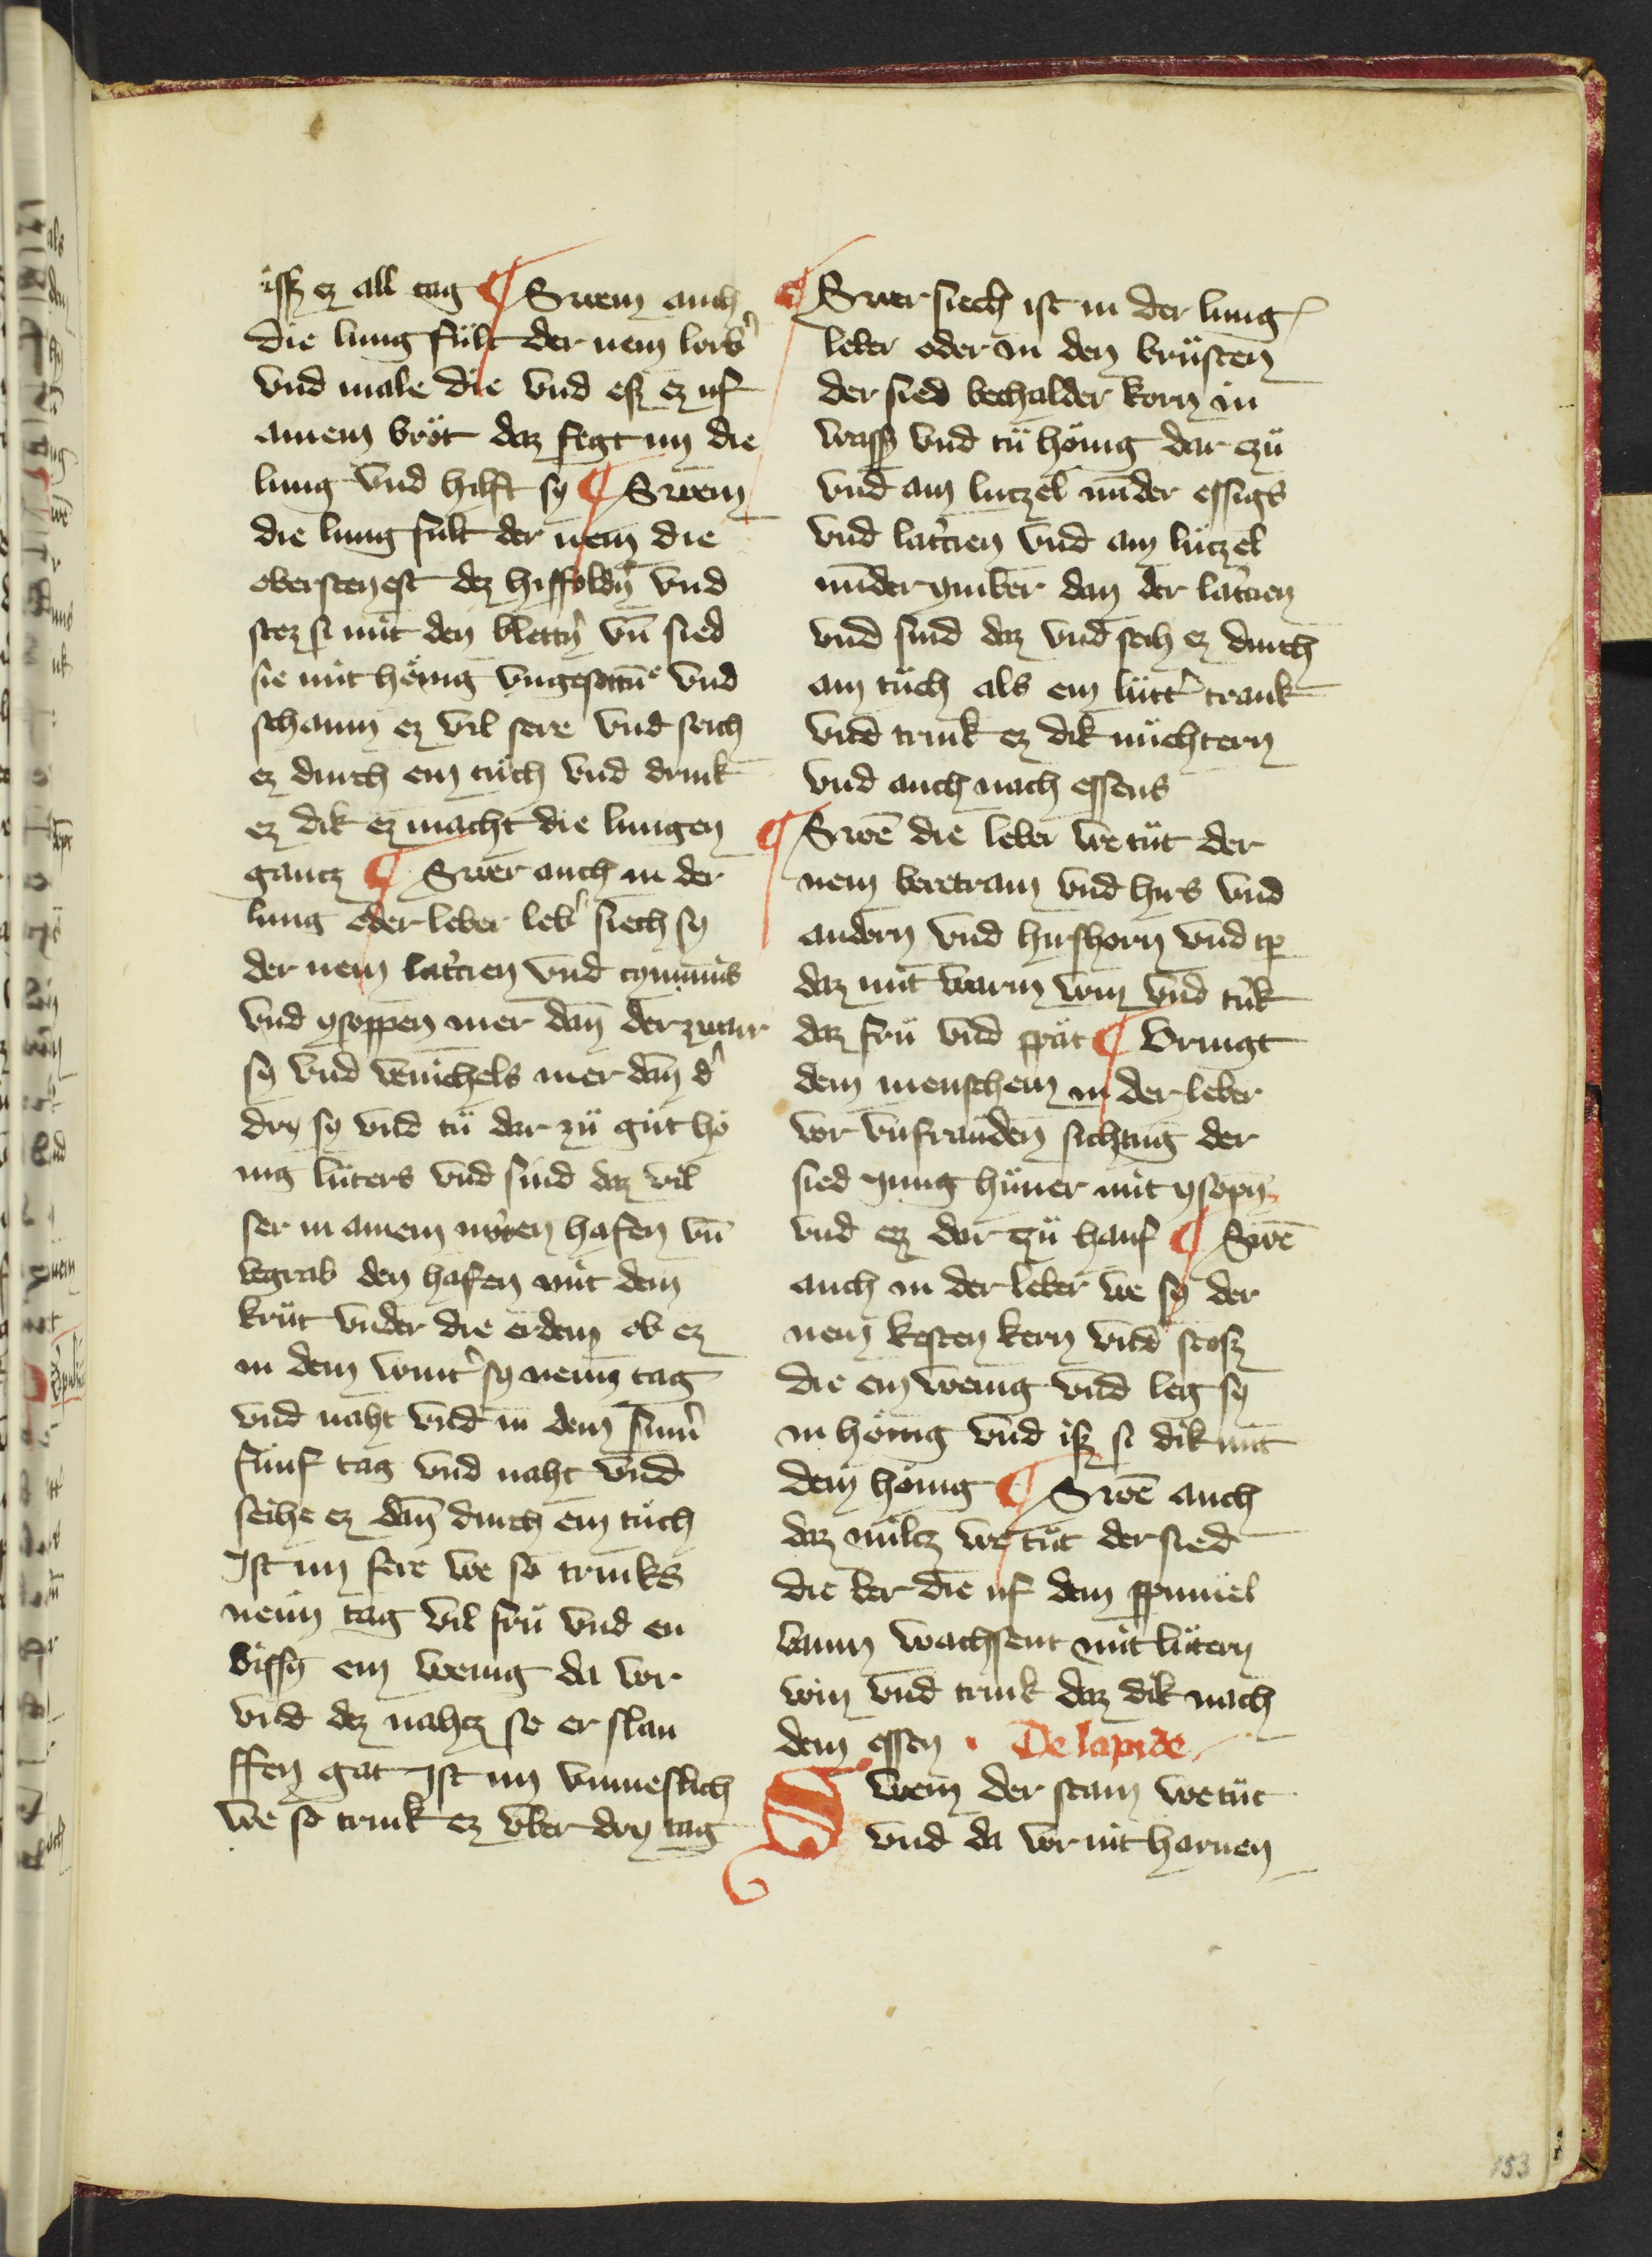 issz ez all tag ¶ Swem auch
die lung fült der nem lorb᾽
vnd male die vnd esz ez uf
ainem bröt daz fegt im die
lung vnd hilft sy ¶ Swem
die lung fult der nem die
obersten est dez hiffoldn᾽ vnd
stoz si mit den blettn᾽ vn̄ sied
sie mit hönig vnd
schaum ez vil sere vnd seich
ez durch ein tüch vnd drink
ez dik ez macht die lungen
gantz ¶ Swer auch in der
lung oder leber leb᾽ siech sy
der nem vnd
vnd ysoppen mer dan̄ der zwair
sy vnd venichels mer dan̄ d᾽
dry sy vnd tü dar zü güt hö
nig lüters vnd süid daz vil
ser in ainem hafen vn̄
begrab den hafen mit dem
krüt vnder die erdem ob ez
in dem wint᾽ sy neün tag
vnd naht vnd in dem sum᾽
fünf tag vnd naht vnd
seihe ez dan̄ durch ein tüch
Ist im sere we so trinks
neün tag vil frü vnd en
bissz ein wenig da vor
vnd dez nahtz so er slau
ffen gat Ist im vnmeslich
we so trink ez vber dry tag
¶ Swer siech ist in der lung
leber oder in den brüsten
der sied bechalder korn in
wassz vnd tü hönig dar czü
vnd ain lutzel minder essigs
vnd vnd ain lützel
minder ymber dan der
vnd süid daz vnd seih ez durch
ain tüch als ein lütt᾽ trank
vnd trink ez dik nüchtern
vnd auch nach essens
¶ Swē die leber we tüt der
nem beretram vnd hirs vnd
andorn vnd hirshorn vnd tp̄
daz mit warm win vnd t᾽ik
daz frü vnd spät ¶ Bringt
dem menschem in der leber
vor der
sied jung hüner mit ysopn
vnd ez dar czü hanf ¶ Swē
auch in der leber we sy der
nem kesten kern vnd stosz
die ein wenig vnd leg sy
in hönig vnd isz si dik mit
dem hönig ¶ Swē auch
daz miltz we tüt der sied
die ber die uf dem spinnel
baum wachsent mit lütern
win vnd trink daz dik nach
dem essen · De lapide
Swem der stain we tüt
vnd da vor nit harnen
153